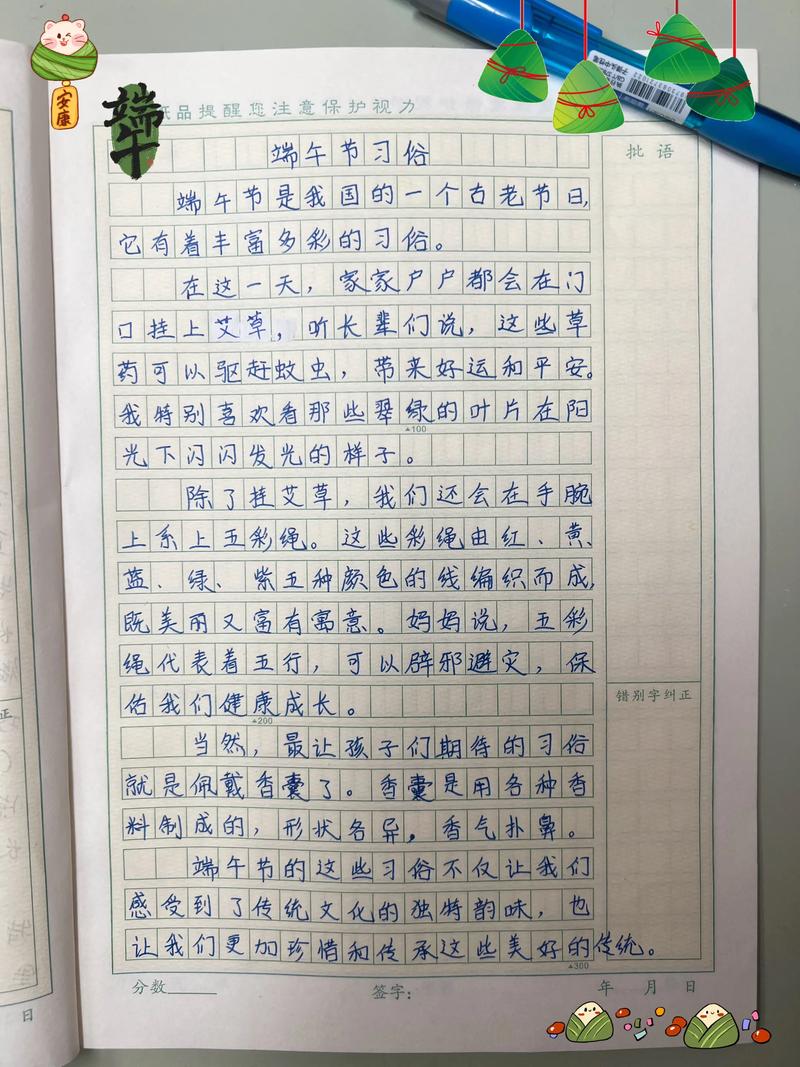 安康
端午
纸品提醒您注意保护视力
端午节习俗
批语
端午节是我国的一个古老节日,
它有着丰富多彩的习俗。
在这一天，家家户户都会在门
口挂上艾草，听长辈们说，这些草
药可以驱赶蚊虫，带来好运和平安。
我特别喜欢看那些翠绿的叶片在阳
▲100
光下闪闪发光的样子。
除了挂艾草，我们还会在手腕
上系上五彩绳。这些彩绳由红、黄、
蓝、绿、紫五种颜色的线编织而成,
既美丽又富有寓意。妈妈说，五彩
绳代表着五行，可以辟邪避灾，保
错别字纠正
佑我们健康成长。
▲200
当然，最让孩子们期待的习俗
就是佩戴香囊了。香囊是用各种香
料制成的，形状各异，香气扑鼻。
端午节的这些习俗不仅让我们
感受到了传统文化的独特韵味，也
让我们更加珍惜和传承这些美好的传统。
▲300
分数
签字：
年 月 日
正
日